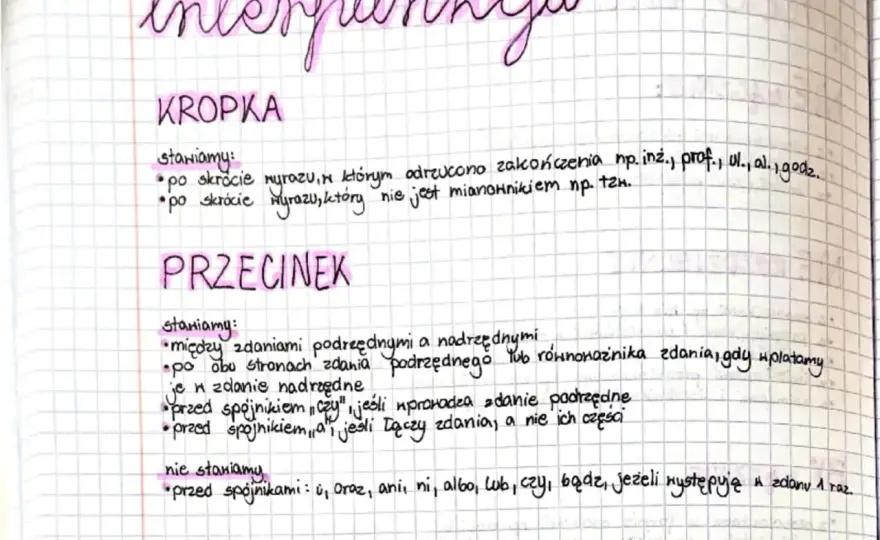 interpunkcja
KROPKA
stawiamy:
•po skrócie wyrazu, w którym odrzucono zakończenia np. inż., prof., ul., al., godz.
•po skrócie wyrazu, który nie jest mianownikiem np. tzw.
PRZECINEK
stawiamy:
•między zdaniami podrzędnymi a nadrzędnymi
•po obu stronach zdania podrzędnego lub równoważnika zdania, gdy wplatamy
je w zdanie nadrzędne
•przed spójnikiem „czy", jeśli wprowadza zdanie podrzędne
•przed spójnikiem „a", jeśli łączy zdania, a nie ich części
nie stawiamy
•przed spójnikami: i, oraz, ani, ni, albo, lub, czy, bądz, jeżeli występują w zdanu 1 raz